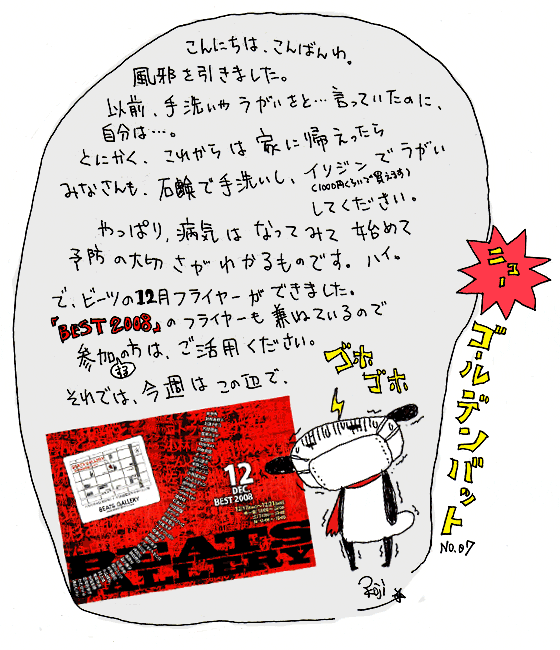 こんにちは、こんばんわ。
風邪を引きました。
以前、手洗いや うがいをと…言っていたのに、
自分は…。
とにかく、これからは 家に帰えったら
みなさんも、石鹸で手洗いし、イソジンで うがい
(1000円くらいで買えます)
してください。
やっぱり、病気は なってみて 始めて
予防の大切さがわかるものです。ハイ。
で、ビーツの12月フライヤーができました。
『BEST 2008』のフライヤーも兼ねているので
参加の方は、ご活用ください。
それでは、今週は この辺で、
ゴホ
ゴホ
ニュー
ゴールデンバット
NO.07
12
DEC.
BEST 2008
BEATS GALLERY
BEATS
GALLERY